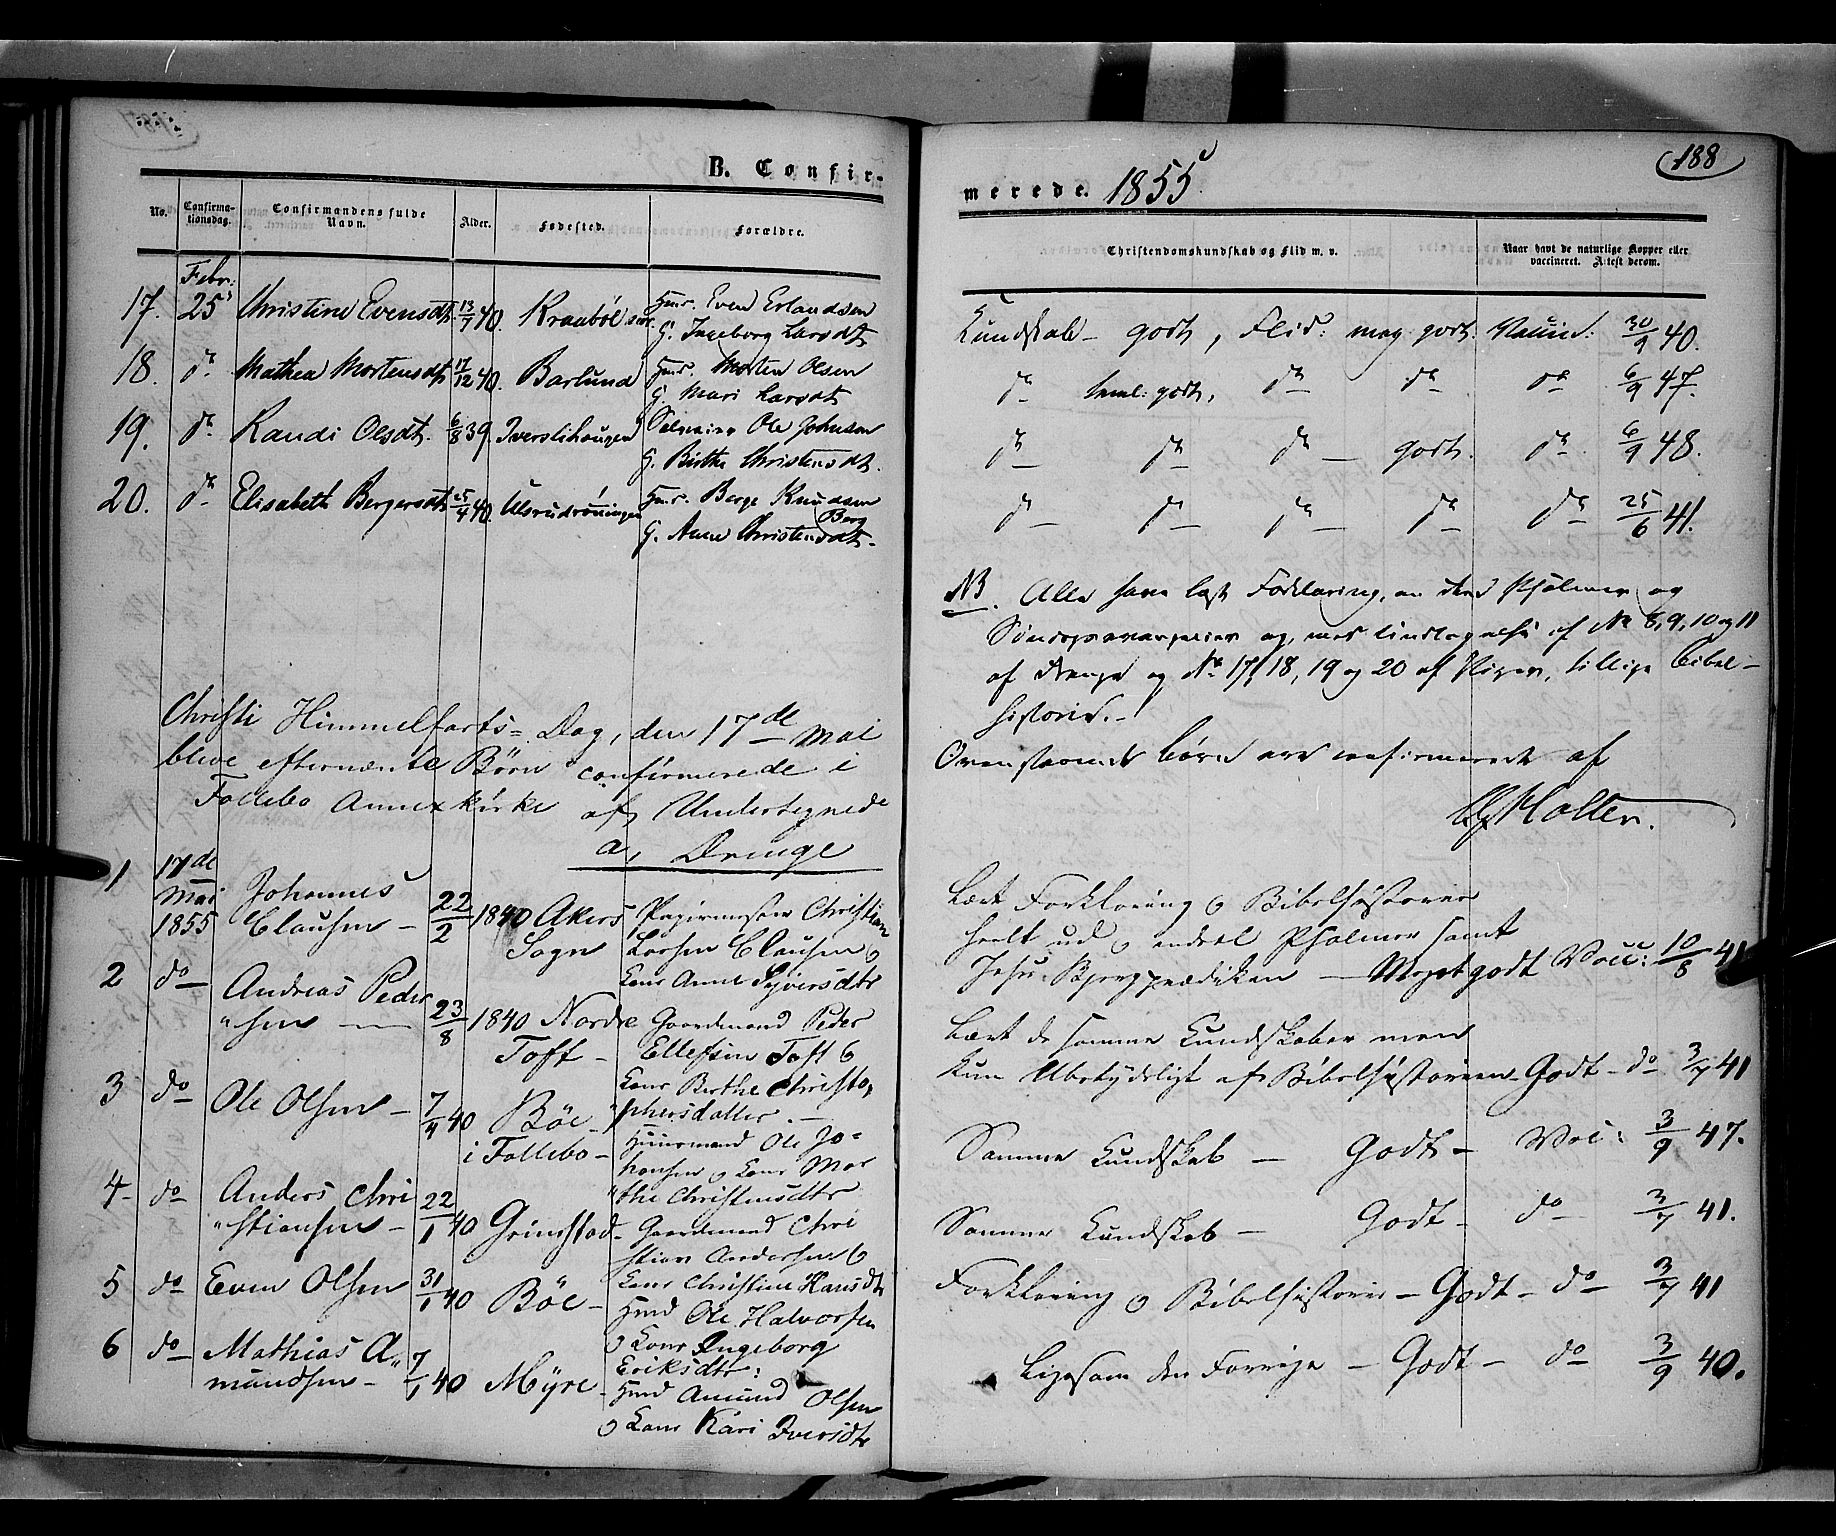 188
B. Confir-
merede. 1855
No.
Confirma-
tionsdag.
Confirmandens fulde
Navn.
Alder.
Fødested.
Forældre.
Christendomskundskab og Flid m. v.
Naar havt de naturlige Kopper eller
vaccineret. Attest derom.
Febr:
17. 25 Christine Evensdt. 13/7 40. Kraabøl Huus. Even Erlandsen
G. Ingeborg Larsdt
Kundskab - godt, Flid: meg. godt. Vaccin: 30/9 40.
18. do Mathea Mortensdt. 17/12 40. Barlund Huus. Morten Olsen
G. Mari Larsdt
do teml: godt, do do do 6/9 47.
19. do Randi Olsdt. 6/8 39. Iverslihaugen Ole Johnsen
G. Birthe Christensdt.
do do do - godt. do 6/9 48.
20. do Elisabeth Bergersdt. 25/4 40. Ulsrudrøningen Huus. Berge Knudsen
Berg
G. Anne Christensdt.
do do do do do 25/6 41.
NB. Alle have læst Forklaring, en Deel Psalmer og
Søndagsevangelier og, med Undtagelse af No 8, 9, 10 og 11
af Drenge og No 17, 18, 19 og 20 af Piger, tillige Bibel-
historie. -
Ovenstaaende Børn ere confirmerede af
Holter.
Christi Himmelfarts- Dag, den 17de Mai
bleve efternævnte Børn confirmerede i
Follebo Annexkirke af Undertegnede
a, Drenge
1 17de
Mai
1855
Johannes
Clausen - 22/2 1840 Akers
Sogn
Christian
Larsen Clausen o
Kone Anne Syversdtr
Lært Forklaring o Bibelhistorie
heelt ud o endeel Psalmer samt
Jesu Bjergprædiken - Meget godt Vacc: 10/8 41
2 do Andreas Peder
"sen - 23/8 1840 Nordre
Toft -
Gaardmand Peder
Ellefsen Toft o
Kone Birthe Christo,
"phersdatter. -
Lært de samme Kundskaber men
kun Ubetydeligt af Bibelhistorien - Godt - do 3/7 41
3 do Ole Olsen - 7/4 40 Böe
i Follebo -
Huusmand Ole Jo=
hansen o Kone Mar
"the Christensdtr
Samme Kundskab - Godt - Vac: 3/9 47.
4 - do Anders Chri
"stiansen - 22/1 40 Grimstad -
Gaardmand Chri
stian Andersen o
Kone Christine Hansdt
Samme Kundskab - Godt - do 3/7 41.
5 do Even Olsen 31/1 40 Böe -
Hmd Ole Halvorsen
o Kone Ingeborg
Eriksdtr:
Forklaring o Bibelhistorie - Godt - do 3/7 41
6 do Mathias A"
mundsen - 7/1 40 Myre -
Hmd Amund Olsen
o Kone Kari Iversdtr
Ligesom den Forrige - Godt - do 3/9 40.